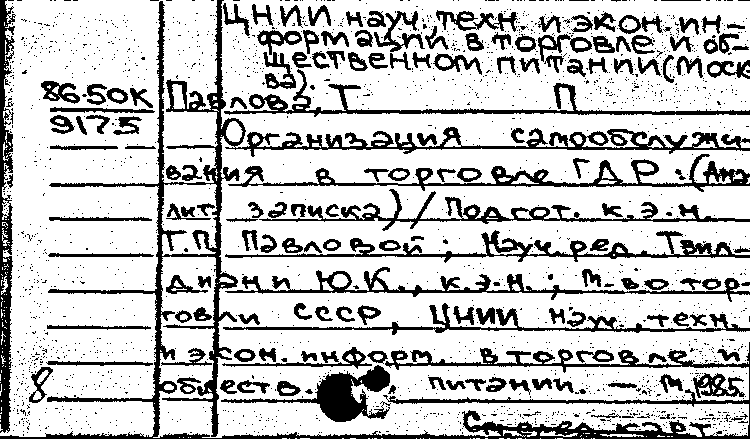 ЦНИИ науч. техн. и экон. ин-
формации в торговле и об-
щественном питании (Моск
ва).
86-50К Павлова, Т П
9175 Организация самообслужи-
вания в торговле ГДР : (Ана
лит. записка) / Подгот. к.э.н.
Т.П. Павловой ; Науч. ред. Твил-
диани Ю.К., к.э.н. ; М-во тор-
говли СССР, ЦНИИ науч., техн.
и экон. информ. в торговле и
8 обществ. питании. — М., 1985.
След. карт.